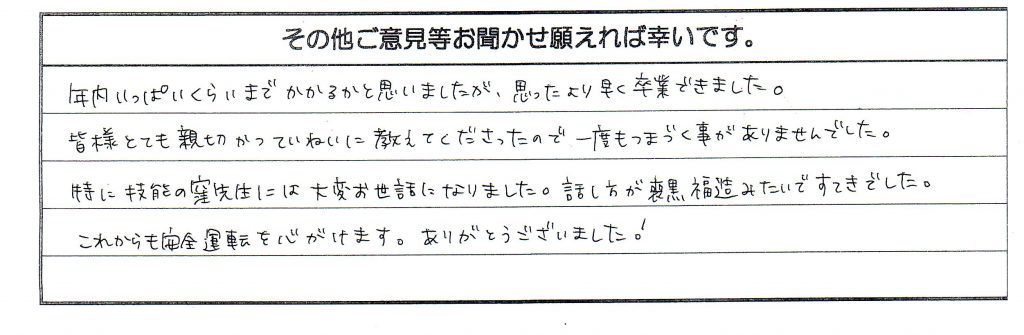 その他ご意見等お聞かせ願えれば幸いです。
年内いっぱいくらいまでかかるかと思いましたが、思ったより早く卒業できました。
皆様とても親切かつていねいに教えてくださったので一度もつまづく事がありませんでした。
特に技能の窪先生には大変お世話になりました。話し方が喪黒福造みたいですてきでした。
これからも安全運転を心がけます。ありがとうございました!